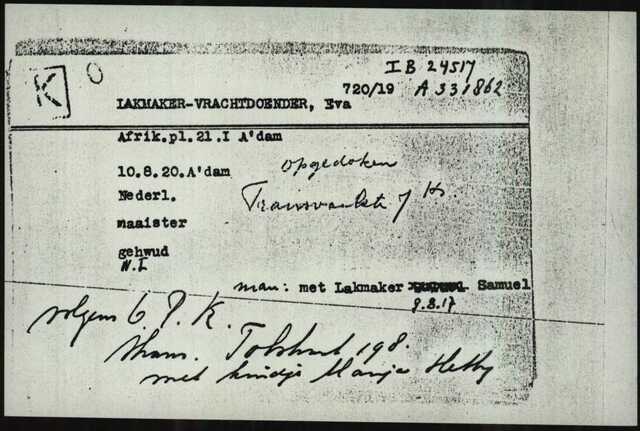 K O
I B 24517
720/19 A 331862
LAKMAKER-VRACHTDOENDER, Eva
Afrik.pl.21.I A'dam
10.8.20.A'dam opgedoken
Nederl. Transvaalstr 7 hs.
naaister
gehwud
N.I
man: met Lakmaker Samuel
9.8.17
volgens C.P.K.
thans. Tolstraat 198.
met kindje Marja Hetty